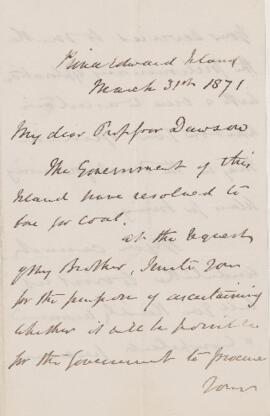 Prince Edward Island
March 31st 1871
My dear Professor Dawson
The Government of this
Island have resolved to
bore for Coal.
at the request
of my Brother, I write you
for the purpose of ascertaining
whether it will be possible
for the Government to procure
Your